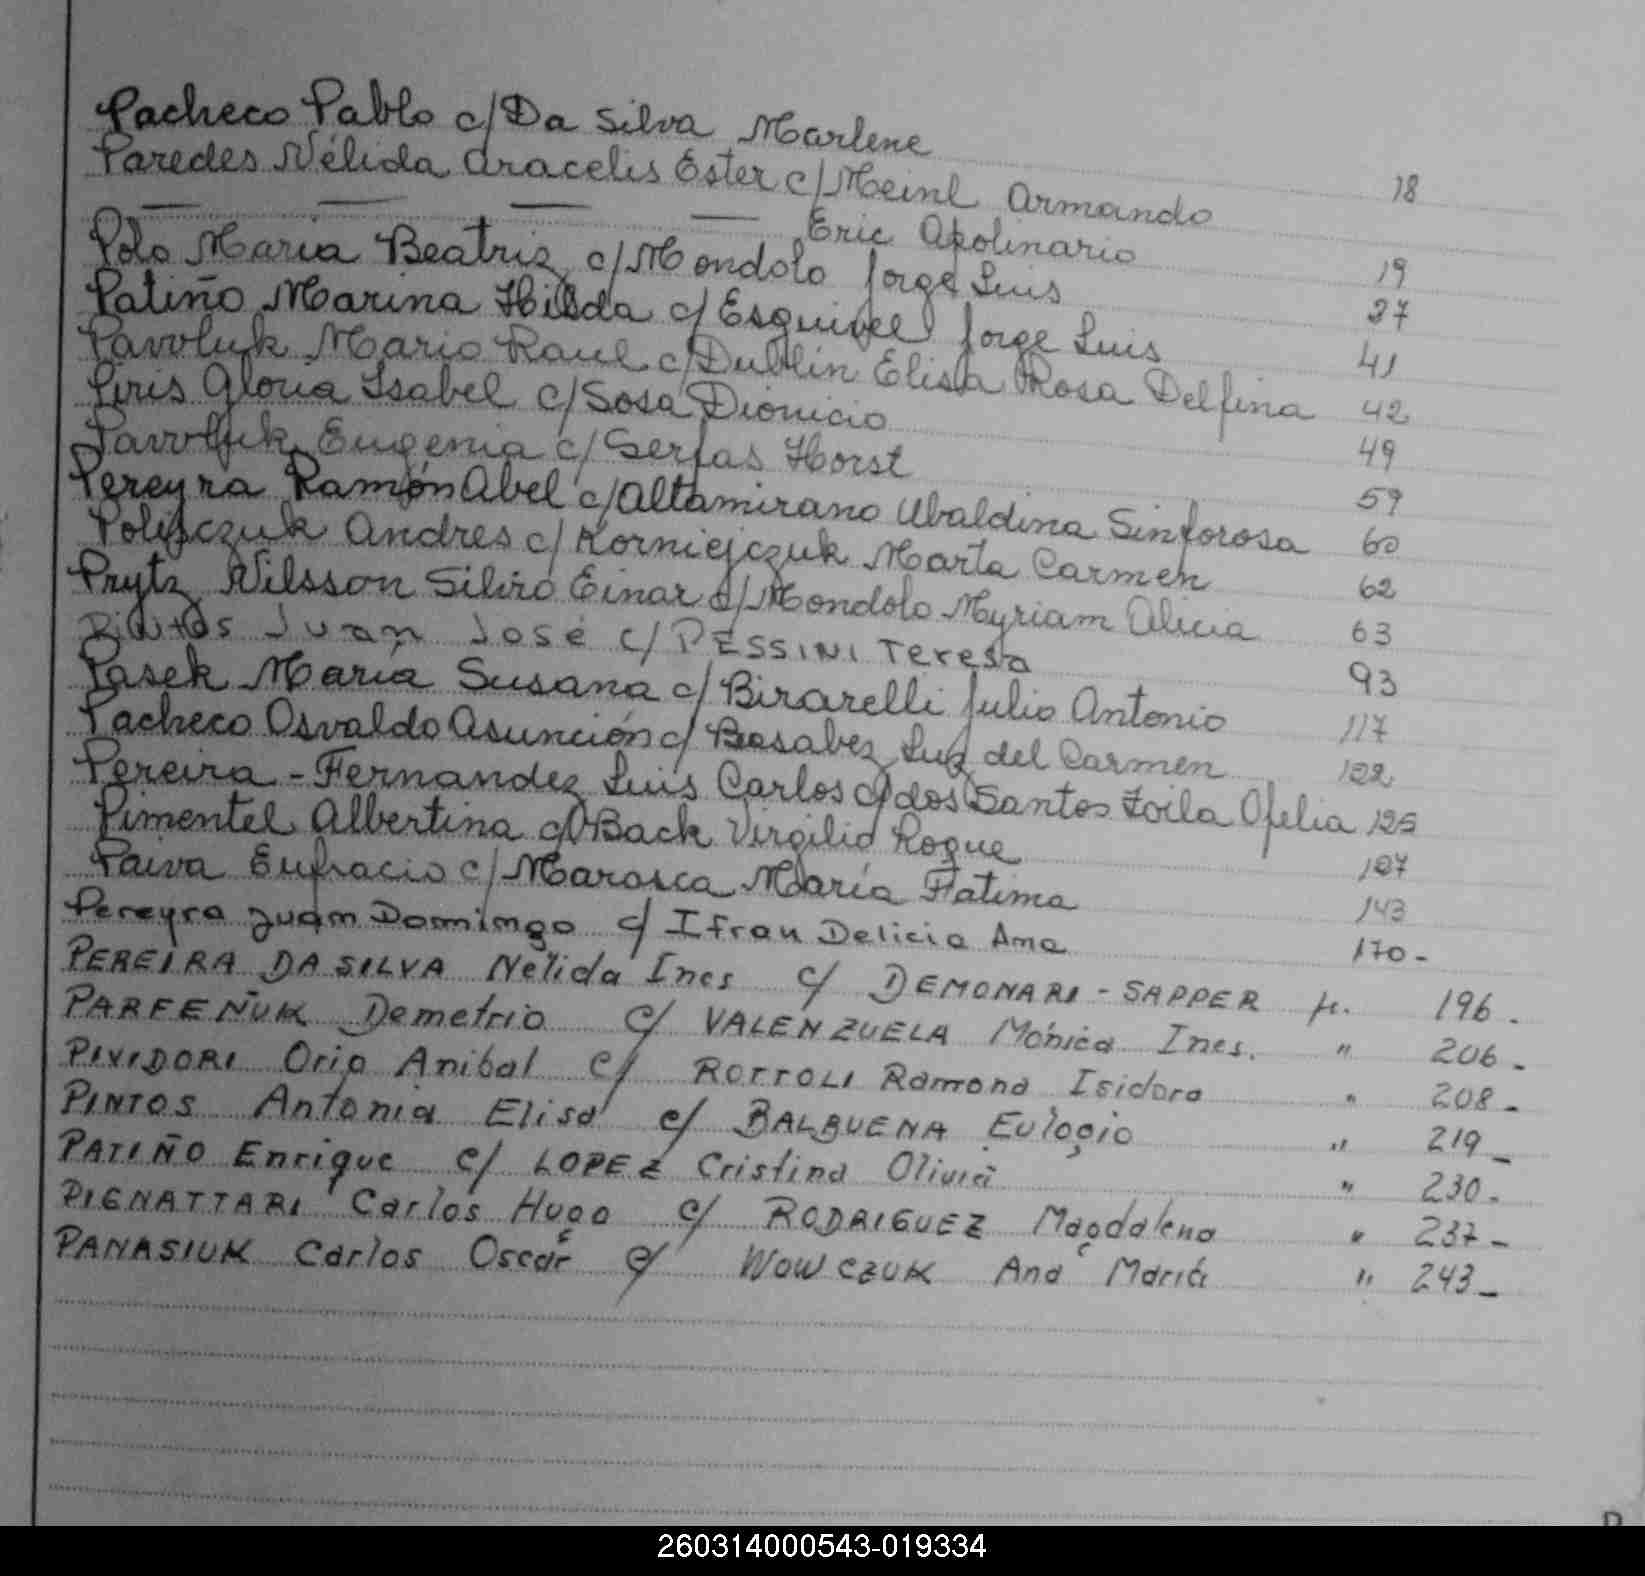 Pacheco Pablo c/ Da Silva Marlene 18
Paredes Nélida Aracelis Ester c/ Meinl Armando
Eric Apolinario 19
Polo Maria Beatriz c/ Mondolo Jorge Luis 37
Patiño Marina Hilda c/ Esquivel Jorge Luis 41
Pavoluk Mario Raul c/ Dublin Elisa Rosa Delfina 42
Piris Gloria Isabel c/ Sosa Dionicio 49
Pavoluk Eugenia c/ Serfas Horst 59
Pereyra Ramón Abel c/ Altamirano Ubaldina Sinforosa 60
Polijczuk Andres c/ Korniejczuk Marta Carmen 62
Prytz Nilsson Silvio Einar c/ Mondolo Myriam Alicia 63
Juan José c/ PESSINI Teresa 93
Pasek Maria Susana c/ Birarelli Julio Antonio 117
Pacheco Osvaldo Asunción c/ Basabez Luz del Carmen 122
Pereira - Fernandez Luis Carlos c/ dos Santos Zoila Ofelia 125
Pimentel Albertina c/ Back Virgilio Roque 127
Paiva Eufracio c/ Marasca María Fatima 143
Pereyra Juan Domingo c/ Ifran Delicia Ana 170-
PEREIRA DA SILVA Nélida Ines c/ DEMONARI - SAPPER fº. 196.
PARFEÑUK Demetrio c/ VALENZUELA Mónica Ines. " 206-
PIVIDORI Orio Anibal c/ ROTTOLI Ramona Isidora " 208-
PINTOS Antonia Elisa c/ BALBUENA Eulogio " 219-
PATIÑO Enrique c/ LOPEZ Cristina Olivia " 230-
PIGNATTARI Carlos Hugo c/ RODRIGUEZ Magdalena " 237-
PANASIUK Carlos Oscar c/ WOWCZUK Ana Maria " 243-
260314000543-019334